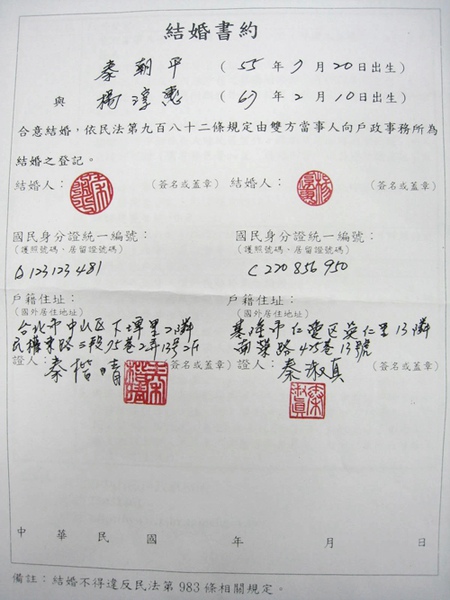 結婚書約
秦朝平 （55年7月20日出生）
與 楊淳惠 （67年2月10日出生）
合意結婚，依民法第九百八十二條規定由雙方當事人向戶政事務所為
結婚之登記。
結婚人： （簽名或蓋章） 結婚人： （簽名或蓋章）
國民身分證統一編號： 國民身分證統一編號：
（護照號碼、居留證號碼） （護照號碼、居留證號碼）
A123123481 C220856950
戶籍住址： 戶籍住址：
（國外居住地址） （國外居住地址）
台北市中山區下埤里2鄰 基隆市仁愛區英仁里13鄰
民權東路三段75巷2弄13號2F 南榮路425巷13號
證人：秦楷晴 （簽名或蓋章） 證人：秦淑真 （簽名或蓋章）
中華民國 年 月 日
備註：結婚不得違反民法第983條相關規定。